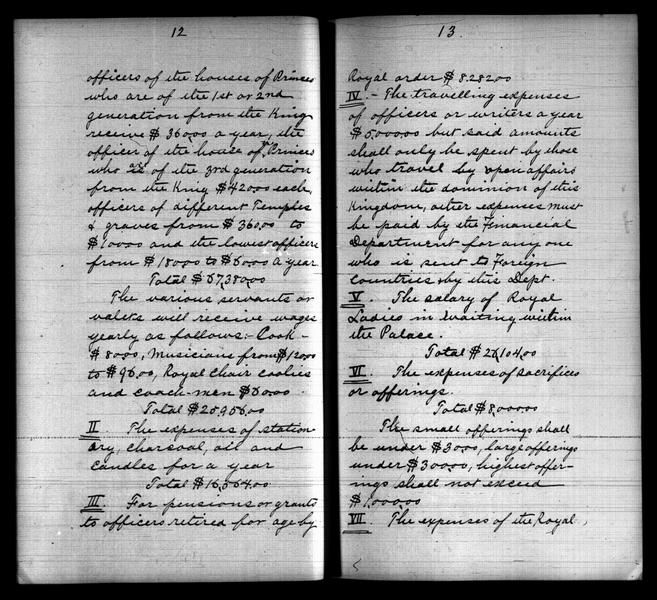 12
officers of the houses of Princes
who are of the 1st or 2nd
generation from the King
receive $360.00 a year, the
officer of the house of Princes
who are of the 3rd generation
from the King $420.00 each,
officers of different Temples
& graves from $360.00 to
$100.00 and the lowest officers
from $180.00 to $60.00 a year
Total $57,380.00
The various servants or
valets will receive wages
yearly as follows:- Cook-
$80.00, Musicians from $120.00
to $96.00, Royal Chair coolies
and coach-men $60.00.
Total $20,956.00
II. The expenses of station
ary, charcoal, oil and
candles for a year
Total $16,564.00
III. For pensions or grants
to officers retired for age by
13.
Royal order $8.282.00
IV.- The travelling expenses
of officers or writers a year
$5,000.00 but said amounts
shall only be spent by those
who travel by open affairs
within the dominion of this
Kingdom, other expenses must
be paid by the Financial
Department for any one
who is sent to Foreign
countries by this Dept.
V. The salary of Royal
Ladies in waiting within
the Palace.
Total $26,104.00
VI. The expenses of sacrifices
or offerings.
Total $8,000.00
The small offerings shall
be under $30.00, large offerings
under $300.00, highest offer-
ings shall not exceed
$1,000.00
VII. The expenses of the Royal